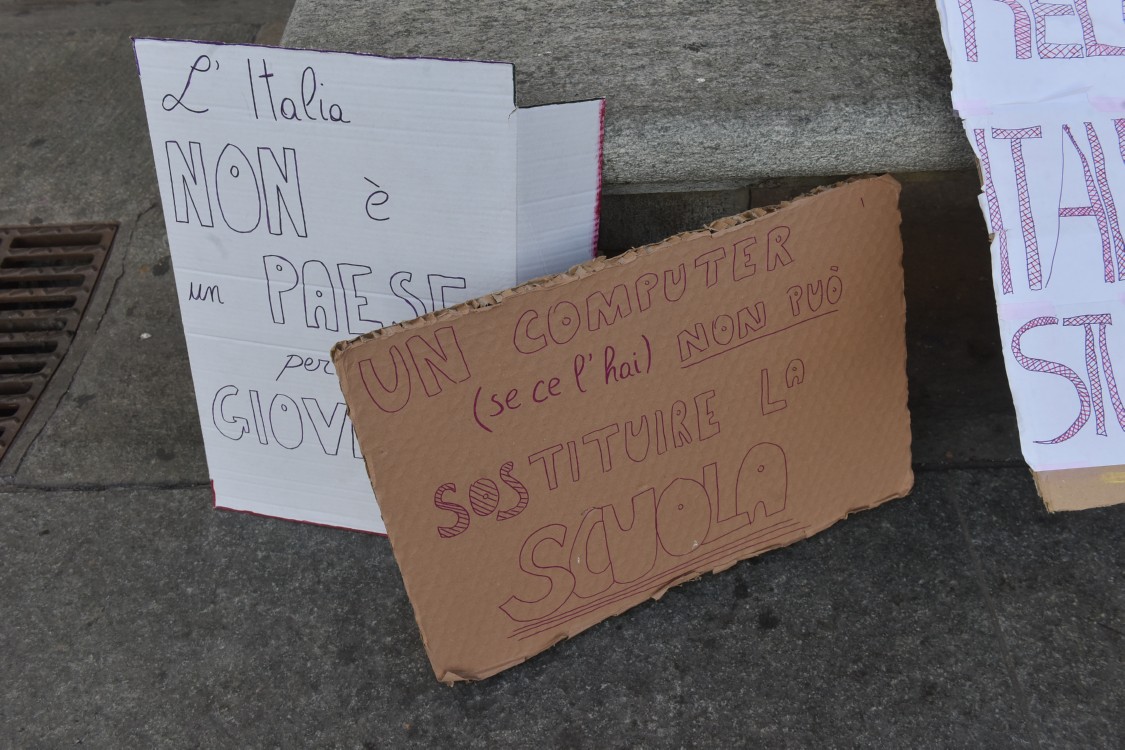 L' Italia
NON è
un PAESE
per
GIOV
UN COMPUTER
(se ce l'hai) NON PUÒ
SOSTITUIRE LA
SCUOLA